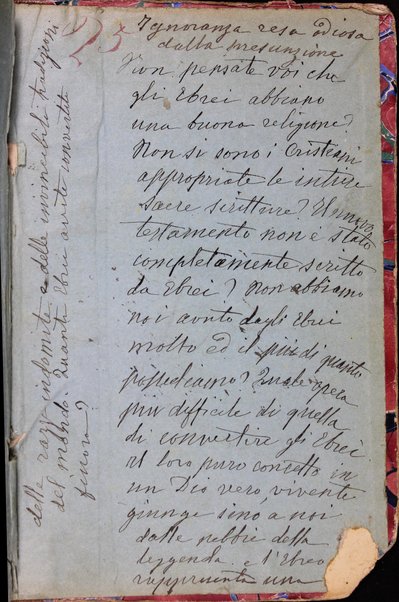 Ignoranza resa odiosa
dalla presunzione
Non pensate voi che
gli Ebrei abbiano
una buona religione?
Non si sono i Cristiani
appropriate le intiere
sacre scritture? Il nuovo
testamento non è stato
completamente scritto
da Ebrei? Non abbiamo
noi avuto dagli Ebrei
molto ed il più di quanto
possediamo? Quale opera
più difficile di quella
di convertire gli Ebrei
Il loro puro concetto in
un Dio vero, vivente
giunge sino a noi
dalle nebbie della
leggenda e l'Ebreo
rappresenta una
delle razze indomite e delle invincibili tradizioni
del mondo. Quanti Ebrei avete convertito
finora?